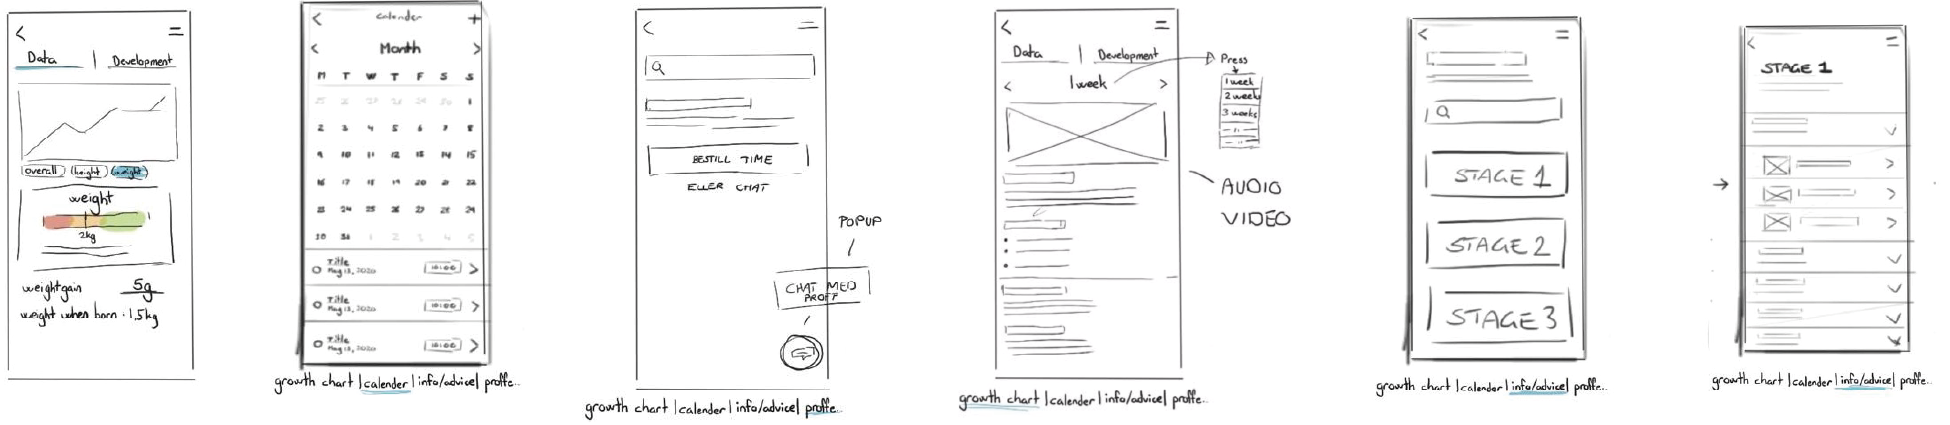 Data | Development
overall height weight
weight
2kg
weightgain 5g
weight when born : 1,5kg
calender
Month
M T W T F S S
1
2 3 4 5 6 7 8
9 10 11 12 13 14 15
16 17 18 19 20 21 22
23 24 25 26 27 28 29
Title
May 13, 2020
10:00
Title
May 13, 2020
10:00
Title
May 13, 2020
10:00
growth chart | calender | info/advice | proffe..
BESTILL TIME
ELLER CHAT
POPUP
CHAT MED
PROFF
growth chart | calender | info/advice | proffe..
Data | Development
1 week
Press
1 week
2 weeks
3 weeks
AUDIO
VIDEO
growth chart | calender | info/advice | proffe..
STAGE 1
STAGE 2
STAGE 3
growth chart | calender | info/advice | proffe..
STAGE 1
growth chart | calender | info/advice | proffe..